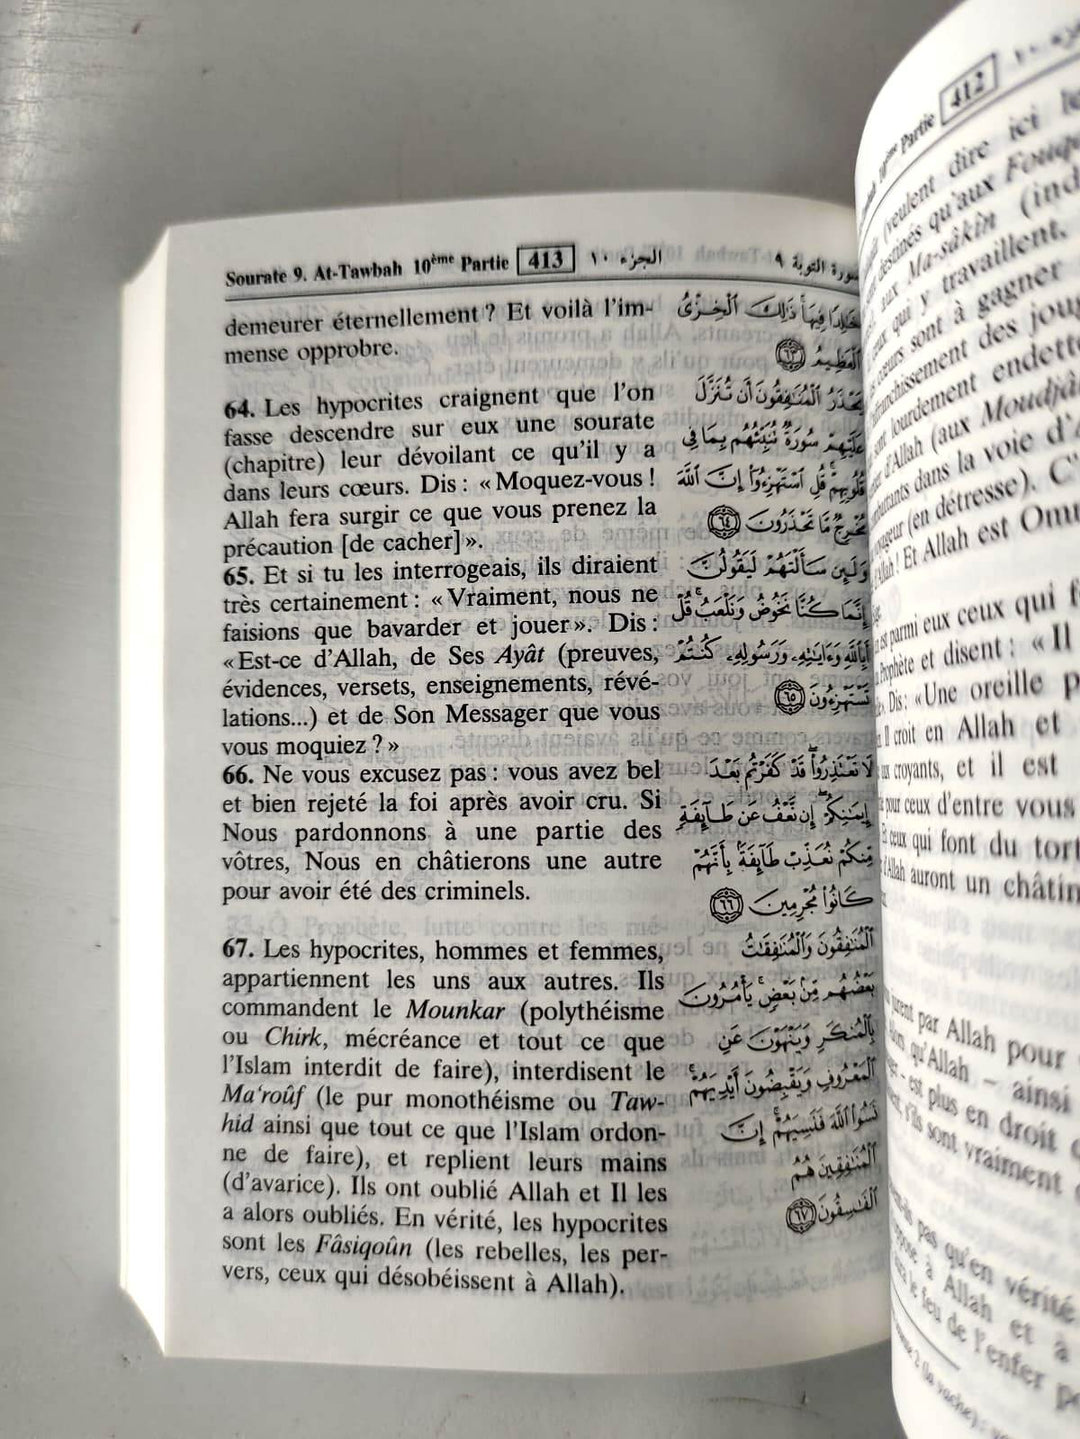 Sourate 9. At-Tawbah 10ème Partie 413 الجزء ١٠ سورة التوبة ٩
demeurer éternellement ? Et voilà l'im-
mense opprobre.
64. Les hypocrites craignent que l'on
fasse descendre sur eux une sourate
(chapitre) leur dévoilant ce qu'il y a
dans leurs cœurs. Dis : « Moquez-vous !
Allah fera surgir ce que vous prenez la
précaution [de cacher] ».
65. Et si tu les interrogeais, ils diraient
très certainement : « Vraiment, nous ne
faisions que bavarder et jouer ». Dis :
« Est-ce d'Allah, de Ses Ayât (preuves,
évidences, versets, enseignements, révé-
lations...) et de Son Messager que vous
vous moquiez ? »
66. Ne vous excusez pas : vous avez bel
et bien rejeté la foi après avoir cru. Si
Nous pardonnons à une partie des
vôtres, Nous en châtierons une autre
pour avoir été des criminels.
67. Les hypocrites, hommes et femmes,
appartiennent les uns aux autres. Ils
commandent le Mounkar (polythéisme
ou Chirk, mécréance et tout ce que
l'Islam interdit de faire), interdisent le
Ma'roûf (le pur monothéisme ou Taw-
hid ainsi que tout ce que l'Islam ordon-
ne de faire), et replient leurs mains
(d'avarice). Ils ont oublié Allah et Il les
a alors oubliés. En vérité, les hypocrites
sont les Fâsiqoûn (les rebelles, les per-
vers, ceux qui désobéissent à Allah).
خَٰلِدًا فِيهَا ذَٰلِكَ ٱلْخِزْىُ
ٱلْعَظِيمُ ٦٣
يَحْذَرُ ٱلْمُنَٰفِقُونَ أَن تُنَزَّلَ
عَلَيْهِمْ سُورَةٌ تُنَبِّئُهُم بِمَا فِى
قُلُوبِهِمْ قُلِ ٱسْتَهْزِءُوٓا۟ إِنَّ ٱللَّهَ
مُخْرِجٌ مَّا تَحْذَرُونَ ٦٤
وَلَئِن سَأَلْتَهُمْ لَيَقُولُنَّ
إِنَّمَا كُنَّا نَخُوضُ وَنَلْعَبُ قُلْ
أَبِٱللَّهِ وَءَايَٰتِهِۦ وَرَسُولِهِۦ كُنتُمْ
تَسْتَهْزِءُونَ ٦٥
لَا تَعْتَذِرُوا۟ قَدْ كَفَرْتُم بَعْدَ
إِيمَٰنِكُمْ إِن نَّعْفُ عَن طَآئِفَةٍ
مِّنكُمْ نُعَذِّبْ طَآئِفَةًۢ بِأَنَّهُمْ
كَانُوا۟ مُجْرِمِينَ ٦٦
ٱلْمُنَٰفِقُونَ وَٱلْمُنَٰفِقَٰتُ
بَعْضُهُم مِّنۢ بَعْضٍ يَأْمُرُونَ
بِٱلْمُنكَرِ وَيَنْهَوْنَ عَنِ
ٱلْمَعْرُوفِ وَيَقْبِضُونَ أَيْدِيَهُمْ
نَسُوا۟ ٱللَّهَ فَنَسِيَهُمْ إِنَّ
ٱلْمُنَٰفِقِينَ هُمُ
ٱلْفَٰسِقُونَ ٦٧
10ème Partie 412
(veulent dire ici
qu'aux
aux Ma-sâkîn
qui y travaillent,
sont à gagner
des
lourdement
d'Allah (aux
dans la voie
(en détresse). C'
! Et Allah est
parmi eux ceux qui
Prophète et disent : « Il
Dis : « Une oreille
Il croit en Allah et
croyants, et il est
pour ceux d'entre vous
Et ceux qui font du
d'Allah auront un
par Allah pour
qu'Allah – ainsi
est plus en droit
s'ils sont vraiment
pas qu'en vérité
à Allah et à
le feu de l'enfer
2 (la vache) :